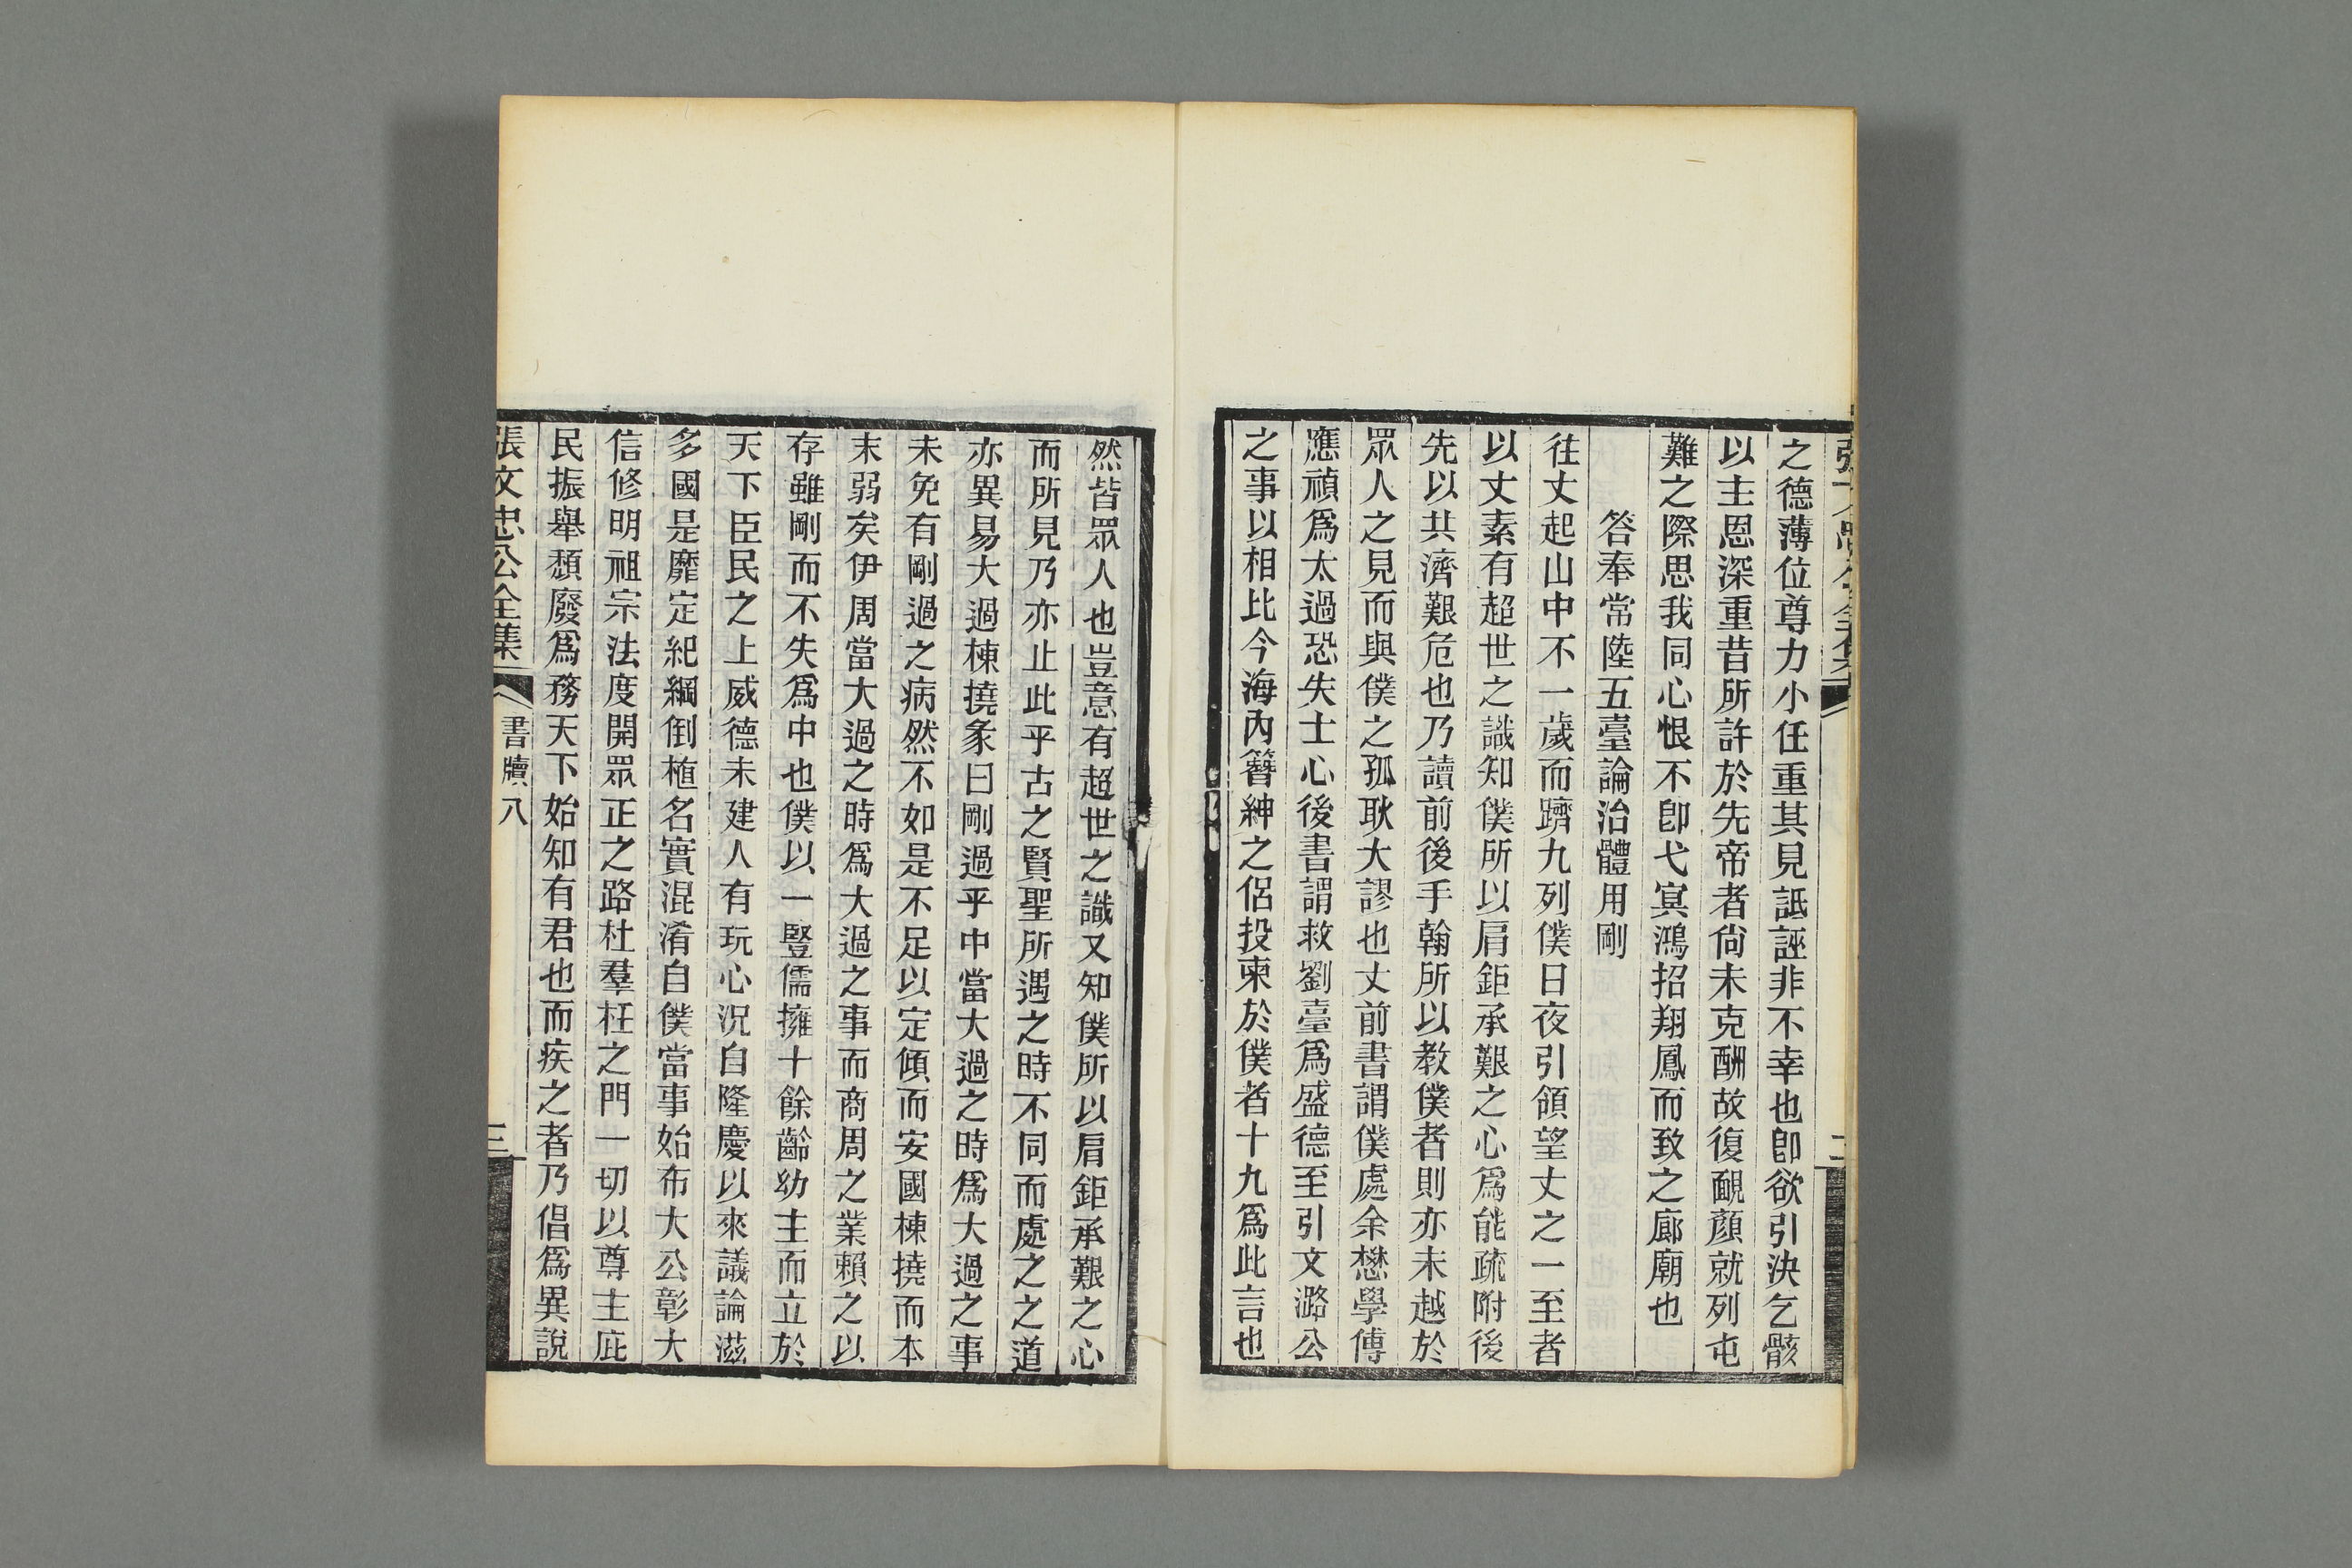 之德薄位尊力小任重其見詆誣非不幸也卽欲引決乞骸
以主恩深重昔所許於先帝者尙未克酬故復靦顏就列屯
難之際思我同心恨不卽弋㝠鴻招翔鳳而致之廊廟也
答奉常陸五臺論治體用剛
往丈起山中不一歲而躋九列僕日夜引領望丈之一至者
以丈素有超世之識知僕所以肩鉅承艱之心爲能疏附後
先以共濟艱危也乃讀前後手翰所以教僕者則亦未越於
眾人之見而與僕之孤耿大謬也丈前書謂僕處余懋學傅
應禎爲太過恐失士心後書謂救劉臺爲盛德至引文潞公
之事以相比今海內簪紳之侶投柬於僕者十九爲此言也
然皆眾人也豈意有超世之識又知僕所以肩鉅承艱之心
而所見乃亦止此乎古之賢聖所遇之時不同而處之之道
亦異易大過棟撓彖曰剛過乎中當大過之時爲大過之事
未免有剛過之病然不如是不足以定傾而安國棟撓而本
末弱矣伊周當大過之時爲大過之事而商周之業賴之以
存雖剛而不失爲中也僕以一豎儒擁十餘齡幼主而立於
天下臣民之上威德未建人有玩心況自隆慶以來議論滋
多國是靡定紀綱倒植名實混淆自僕當事始布大公彰大
信修明祖宗法度開眾正之路杜羣枉之門一切以尊主庇
民振舉頹廢爲務天下始知有君也而疾之者乃倡爲異說
張文忠公全集 書牘八 三